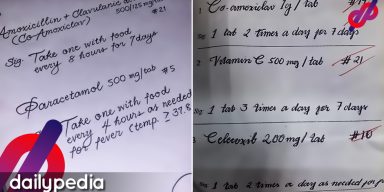 Amoxicillin + Clavulanic
(Co-Amoxiclav) 500/125 mg/tab
#21
Sig. Take one with food
every 8 hours for 7 days
Paracetamol 500 mg/tab #5
Take one with food
every 4 hours as needed
for fever (temp. ≥ 37.8
dailypedia
1 Co-amoxiclav 1g / tab #14
Sig 1 tab 2 times a day for 7 days
2 Vitamin C 500 mg / tab #21
Sig 1 tab 3 times a day for 7 days
3 Celecoxib 200 mg / tab #10
Sig 1 tab 2 times a day as needed for